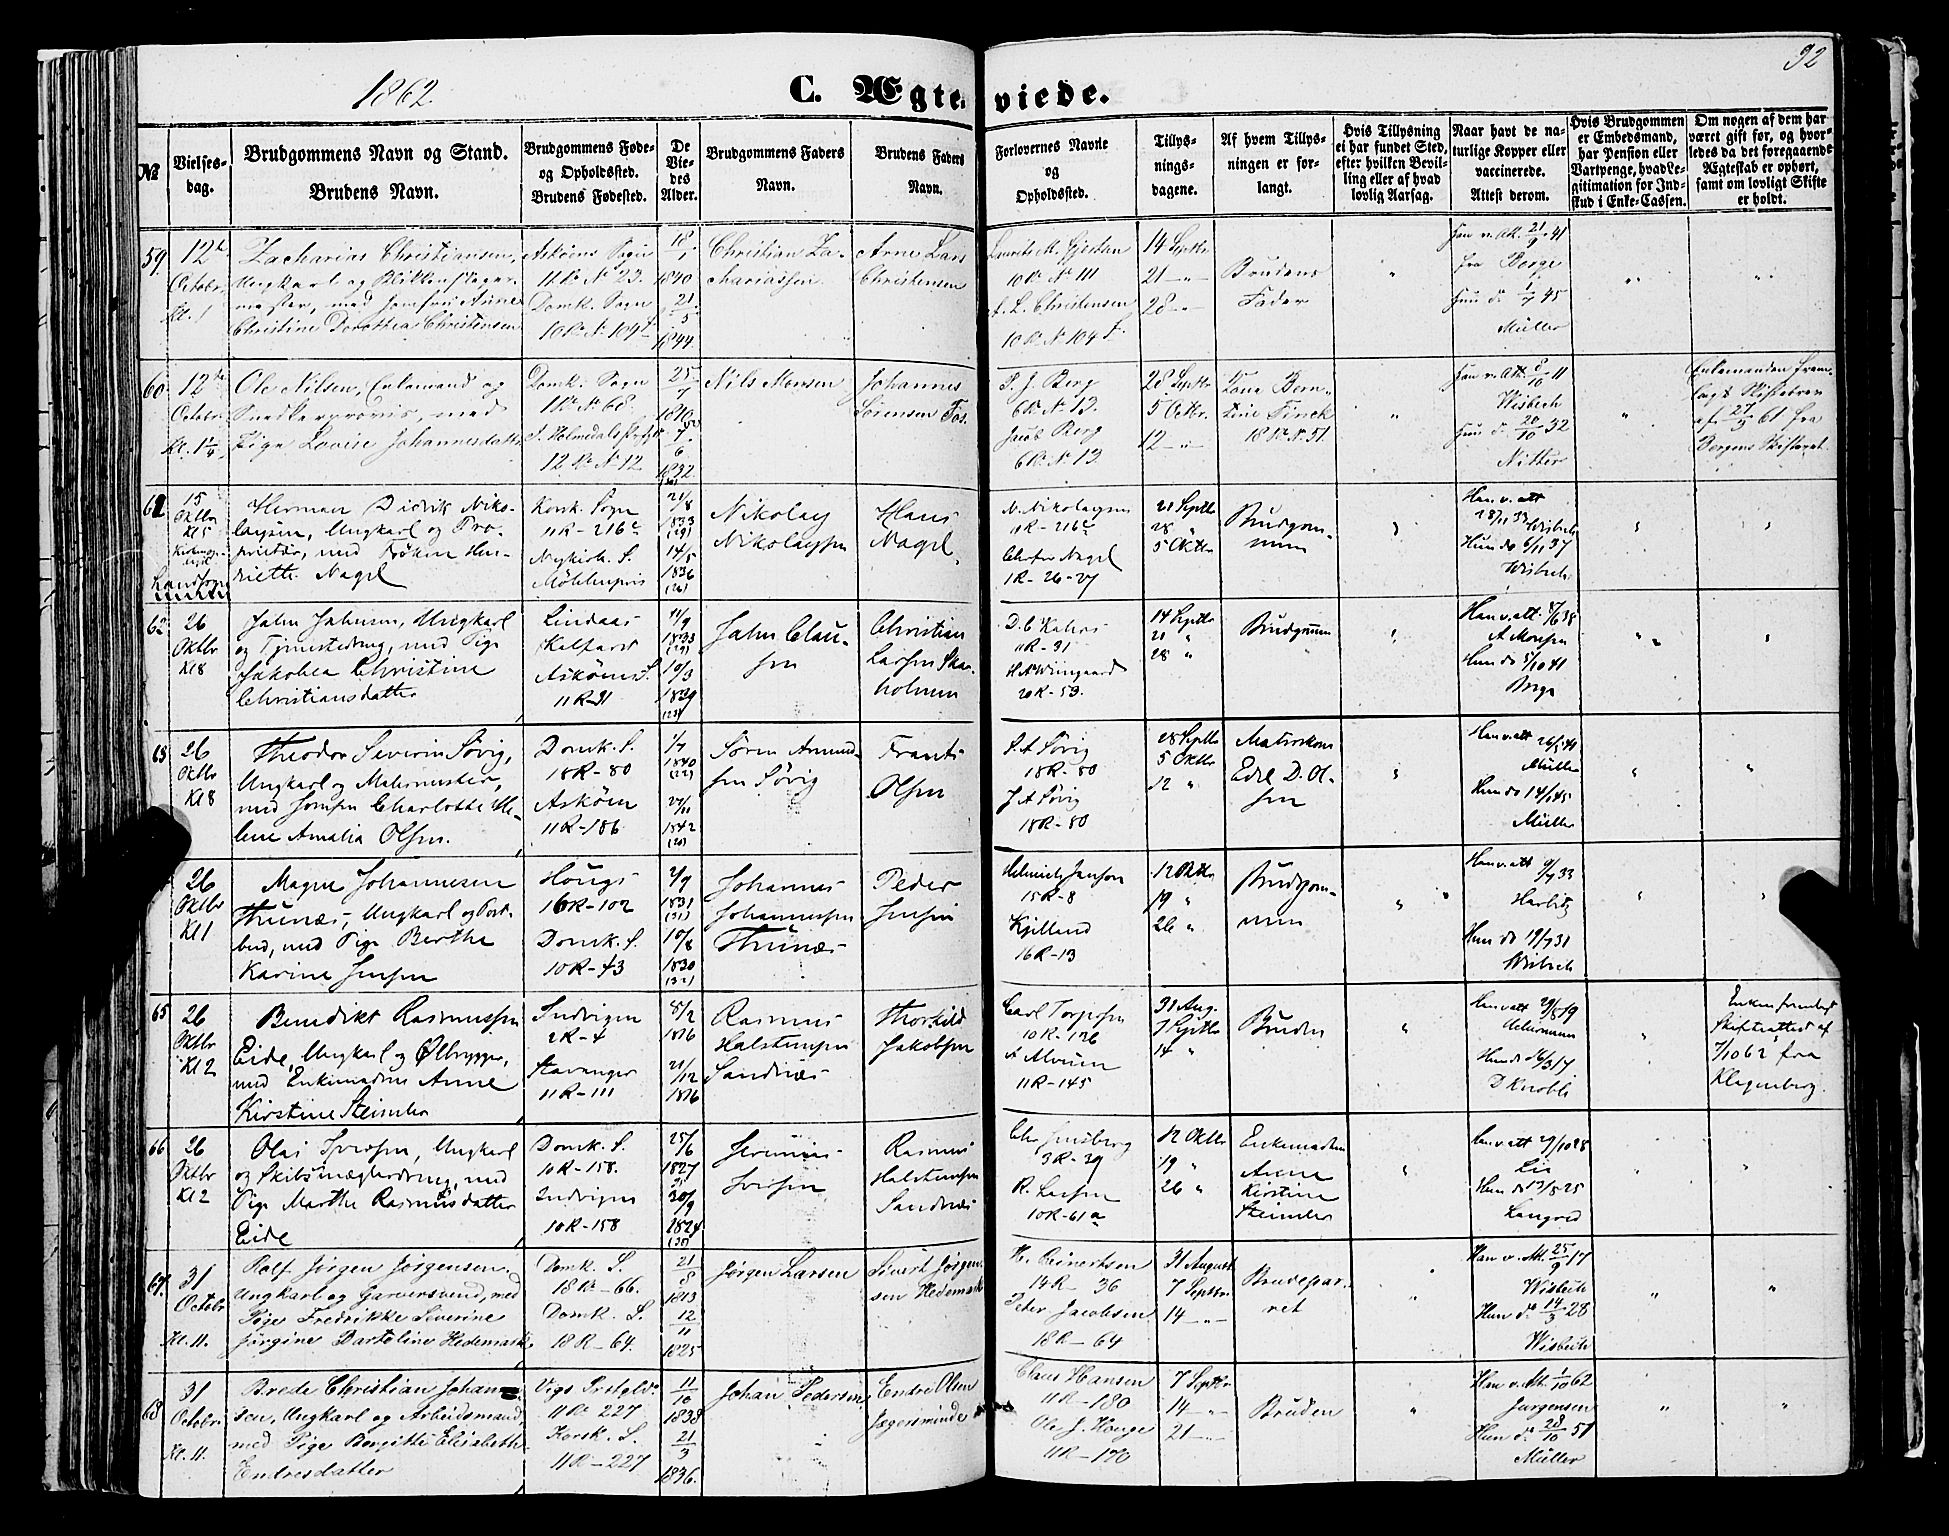 92
1862.
C. Ægteviede.
№
Vielses-
dag.
Brudgommens Navn og Stand.
Brudens Navn.
Brudgommens Føde-
og Opholdssted.
Brudens Fødested.
De
Vie-
des
Alder.
Brudgommens Faders
Navn.
Brudens Faders
Navn.
Forlovernes Navne
og
Opholdssted.
Tillys-
nings-
dagene.
Af hvem Tillys-
ningen er for-
langt.
Hvis Tillysning
ei har fundet Sted,
efter hvilken Bevil-
ling eller af hvad
lovlig Aarsag.
Naar havt de na-
turlige Kopper eller
vaccinerede.
Attest derom.
Hvis Brudgommen
er Embedsmand,
har Pension eller
Vartpenge, hvad Le-
gitimation for Ind-
skud i Enke-Cassen.
Om nogen af dem har
været gift før, og hvor-
ledes da det foregaaende
Ægteskab er ophørt,
samt om lovligt Skifte
er holdt.
59.
12te
Octobr.
Kl. 1
Zacharias Christiansen,
Ungkarl og
med Jomfru Anne
Christine Dorothea Christensen
Askøens Sogn
11 R. N. 23.
Domk. Sogn
10 R. N. 104
18/1
1840
21/5
1844.
Christian Za-
chariassen
Arne Lars
Christensen
10 R. N. 111
A. L. Christensen
10 R. N. 104
14 Septbr.
21 — "
28 — "
Brudens
Fader
Han v. Att. 21/9 41
fra Berge
Hun d. 1/7 45
Müller
60.
12te
Octobr.
Kl. 1
Ole Nilsen, Enkemand og
med
Pige Lovise Johannesdatter
Domk. Sogn
11 R. N. 68.
12 R. N. 12
25/7
1810
6
1832.
Nils Monsen
Johannes
Sørensen Fos.
P. J. Berg
6 R. N. 13.
Jacob Berg
6 R. N. 13
28 Septbr.
5 Octbr.
12 — "
Finck
18 R. N. 51
Han v. Att. 8/10 11
Wisbech
Hun d. 20/10 32
Nitter
Enkemanden frem-
lagt Skiftebrev
af 27/9 61 fra
Bergens Skifteret
61
15
Oktbr
Kl 5
Herman Didrik Niko-
laysen, Ungkarl og Pro-
prietær, med Frøken Hen-
riette Nagel
Korsk. Sogn
11 R - 216 c
Nykirk. S.
21/8
1833
(29)
14/5
1836
(26)
Nikolay
Nikolaysen
Hans
Nagel
N. Nikolaysen
11 R - 216 c
Chr. Nagel
1 R - 26-27
21 Septbr
28 "
5 Oktbr
Brudgom-
men
Han v. att
28/11 33 Wisbech
Hun do 6/11 37
Wisbech
62
26
Oktbr
Kl 8
Jahn Jahnsen, Ungkarl
og Tjenestedreng, med Pige
Jakobea Christine
Christiansdatter
Lindaas
Kalfaret
Askøens S.
11 R - 31
11/9
1833
(29)
10/3
1839
(23)
Jahn Clau-
sen
Christian
Larsen Ska-
holmen
D. C. Kahrs
11 R - 31
H. Wiingaard
20 R - 53.
14 Septbr
21 "
28 "
Brudgommen
Han v. att. 4/6 38
A Monsen
Hun do 5/10 41
Berge
63
26
Oktbr
Kl 8
Theodor Severin Søvig,
Ungkarl og Malermester,
med Jomfru Charlotte He-
lene Amalia Olsen.
Domk. S.
18 R - 80
Askøen
11 R - 186
1/7
1840
(22)
27/11
1842
(20)
Søren Amund-
sen Søvig
Frants
Olsen
S. A Søvig
18 R - 80
J A Søvig
18 R - 80
28 Septbr
5 Oktbr
12 "
Matroskone
Edel D. Ol-
sen
Han v. att 26/5 41
Müller
Hun do 14/1 45
Müller
26
Oktbr
Kl 1
Magne Johannesen
Thunæs, Ungkarl og Post-
bud, med Pige Berthe
Karine Jensen
Hougs
16 R - 102
Domk. S.
10 R - 43
2/9
1831
(31)
10/8
1830
(32)
Johannes
Johannessen
Thunæs
Peder
Jensen
Helmich Janson
15 R - 8
Kjelland
16 R - 13
12 Oktbr
19 "
26 "
Brudgom-
men
Han v. att 9/7 33
Harbitz
Hun do 19/7 31
Wisbech
65
26
Oktbr
Kl 2
Benedikt Rasmussen
Eide, Ungkarl og Ølbrygger,
med Enkemadme Anne
Kirstine Steimler
Indvigen
2 R - 4
Stavanger
11 R - 111
8/2
1816
21/12
1816
Rasmus
Halstensen
Sandnæs
Thorkild
Jakobsen
Carl Torjesen
10 R - 126
A Alvum
11 R - 145
31 Aug.
7 Septbr
14 "
Bruden
Han v att 29/8 19
Hun do 16/3 17
D Knobli
Enken fremlagt
Skifteattest af
7/10 62 fra
Klagenberg.
66
26
Oktbr
Kl 2
Olai Iversen, Ungkarl
og Skibsmæglerdreng, med
Pige Marthe Rasmusdatter
Eide
Domk. S.
10 R - 158.
Indvigen
10 R - 158
25/6
1827
30/9
1824
Jeremias
Iversen
Rasmus
Halstensen
Sandnæs
Chr. Jensberg
3 R - 39
R. Larsen
10 R - 61 a
12 Oktbr
19 "
26 "
Enkemadam
Anne
Kirstine
Steimler
Han v att 29/10 28
Lie
Hun do 13/8 25
Langved
67.
31
Octobr
Kl. 11.
Rolf Jørgen Jørgensen.
Ungkarl og Garversvend, med
Pige Fredrikke Severine
Jørgine Bartoline Hedemark.
Domk. S.
18 R - 66.
Domk. S.
18 R - 64.
21/5
1813
12/11
1825
Jørgen Larsen
Sivert Jørgen-
sen Hedemark
H. Reinertsen
14 R - 36
Peter Jacobsen
18 R - 64
31 August
7 Septbr.
14 — " —
Brudepar-
ret
Han v. Att. 25/9 17
Wisbech
Hun d. 14/3 28
Wisbech
68
31
Octobr.
Kl. 11.
Brede Christian Johan-
sen, Ungkarl og Arbeidsmand,
med Pige Bergitte Elisabeth
Endresdatter
Vigs Prstgld.
11 R. 227
Korsk. S.
11 R - 227
11/10
1838
21/3
1836.
Johan Pedersen
Endre Olsen
Jægersminde
Claus Hansen
11 R - 180
Ole J. Houge
11 R - 170
7 Septbr.
14 — " —
21 — " —
Bruden
Han v. Att. 1/10 62
Jurgensen
Hun d. 28/10 51
Müller